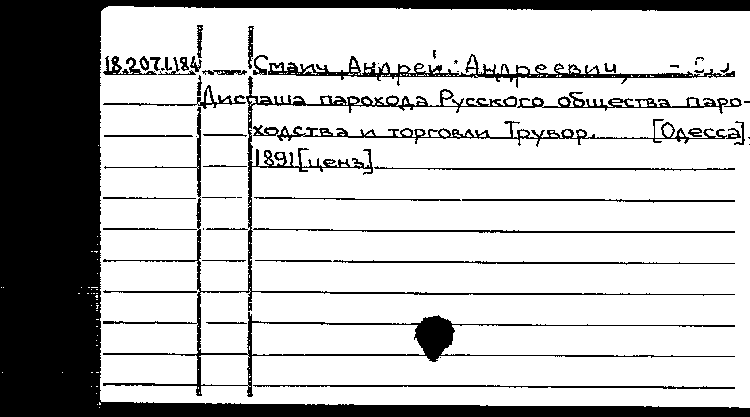 18.207.1.184 Смаич Андрей Андреевич,
Диспаша парохода Русского общества паро-
ходства и торговли Трувор. [Одесса],
1891[ценз]